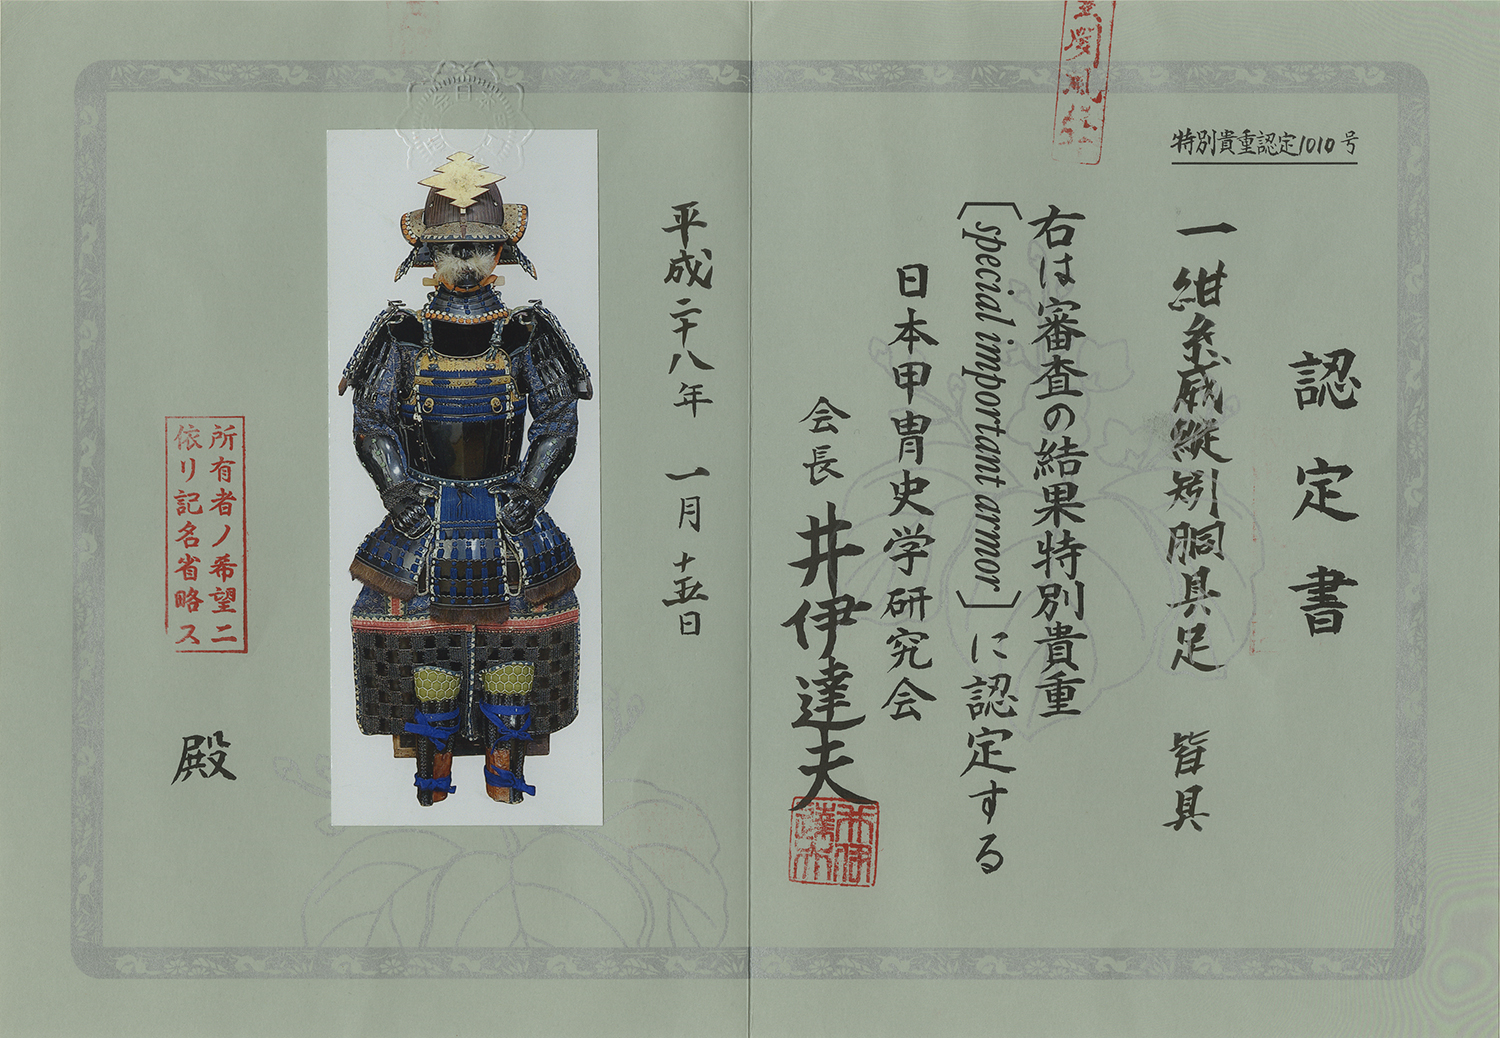 特別貴重認定1010号
認定書
一 紺糸威縦矧胴具足 皆具
右は審査の結果特別貴重
〔special important armor〕に認定する
日本甲冑史学研究会
会長 井伊達夫
平成二十八年 一月 十五日
所有者ノ希望ニ
依リ記名省略ス
殿